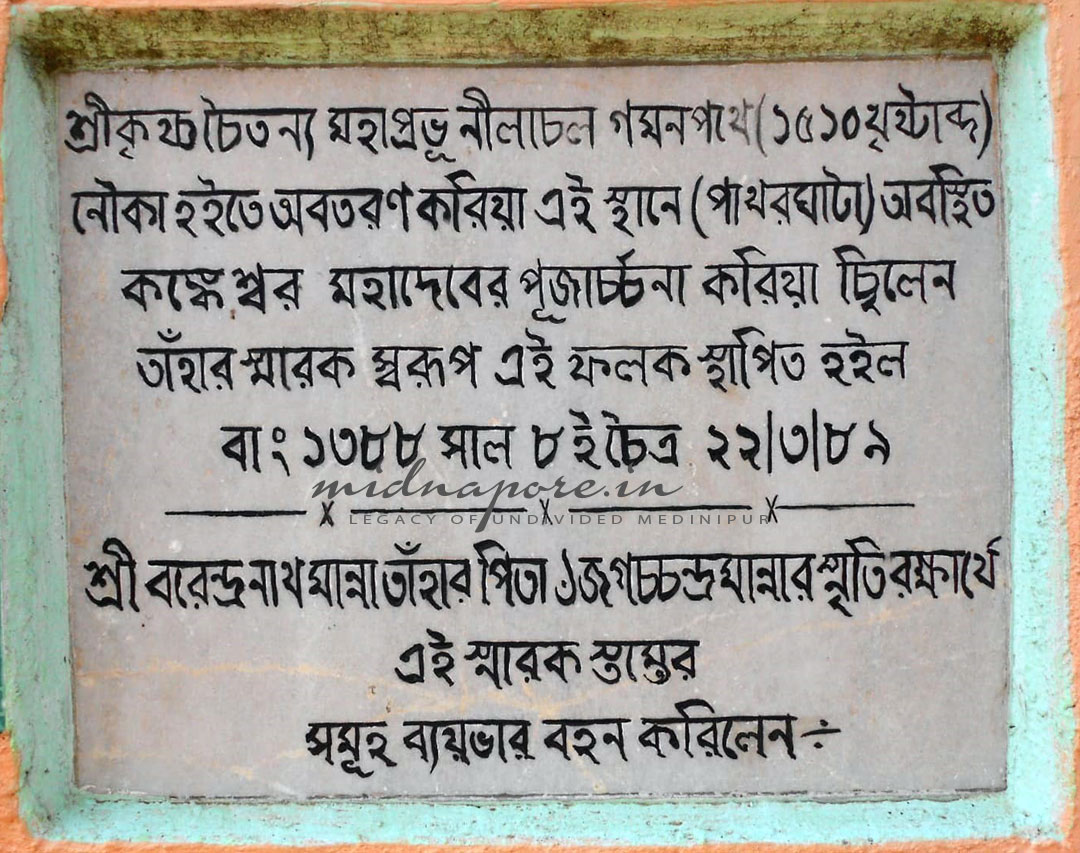 শ্রীকৃষ্ণ চৈতন্য মহাপ্রভূ নীলাচল গমনপথে (১৫১০ খৃষ্টাব্দ)
নৌকা হইতে অবতরণ করিয়া এই স্থানে (পাথরঘাটা) অবস্থিত
কঙ্কেশ্বর মহাদেবের পূজার্চ্চনা করিয়া ছিলেন
তাঁহার স্মারক স্বরূপ এই ফলক স্থাপিত হইল
বাং ১৩৮৮ সাল ৮ই চৈত্র ২২/৩/৮৯
midnapore.in
LEGACY OF UNDIVIDED MEDINIPUR
শ্রী বরেন্দ্রনাথ মান্না তাঁহার পিতা ঁজগচ্চন্দ্র মান্নার স্মৃতি রক্ষার্থে
এই স্মারক স্তম্ভের
সমূহ ব্যয়ভার বহন করিলেন ÷